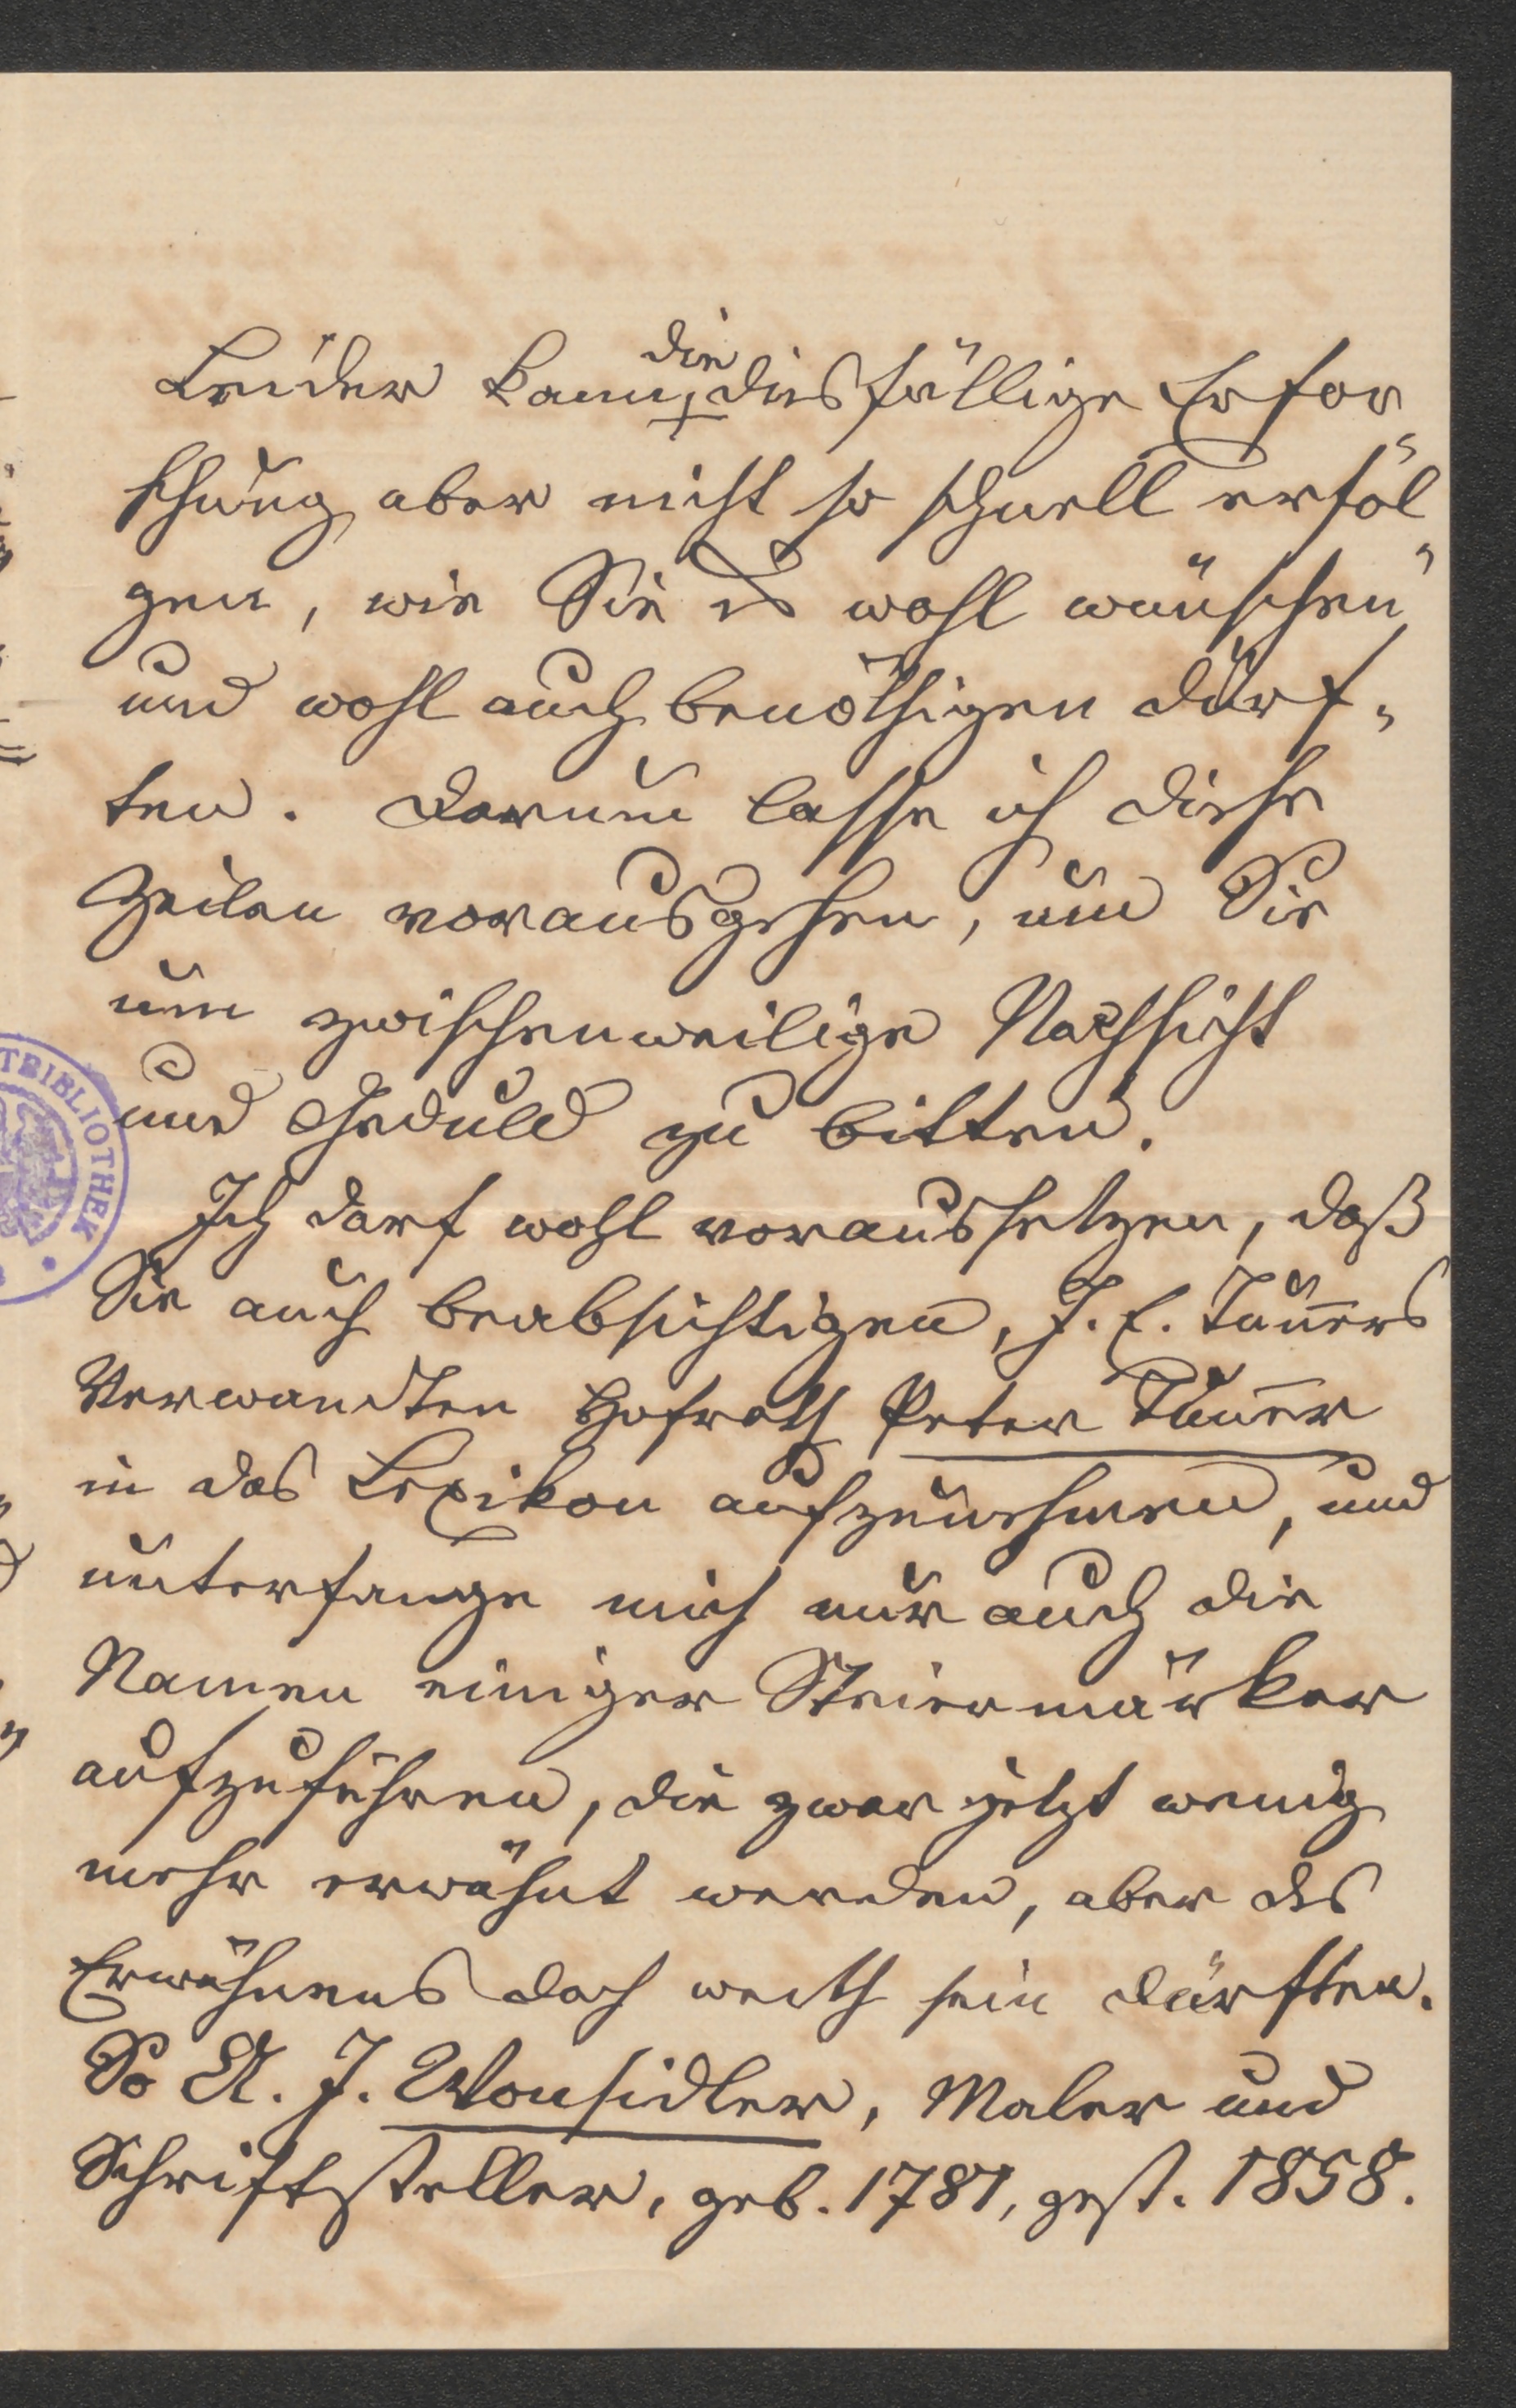 Leider kann die diesfällige Erfor„
schung aber nicht so schnell erfol„
gen, wie Sie es wohl wünschen
und wohl auch benöthigen dürf„
ten. Darum lasse ich diese
Zeilen vorausgehen, um Sie
um zwischenweilige Nachsicht
und Geduld zu bitten.
Ich darf wohl voraussetzen, daß
Sie auch beabsichtigen, J. E. Tuners
Verwandten Hofrath Peter Tuner
in das Lexikon aufzunehmen, und
unterfange mich nur auch die
Namen einiger Steiermärker
aufzuführen, die zwar jetzt wenig
mehr erwähnt werden, aber des
Erwähnens doch werth sein dürften.
So A. J. Wonsidler, Maler und
Schriftsteller, geb. 1781, gest. 1858.
TBIBLIOTHEK